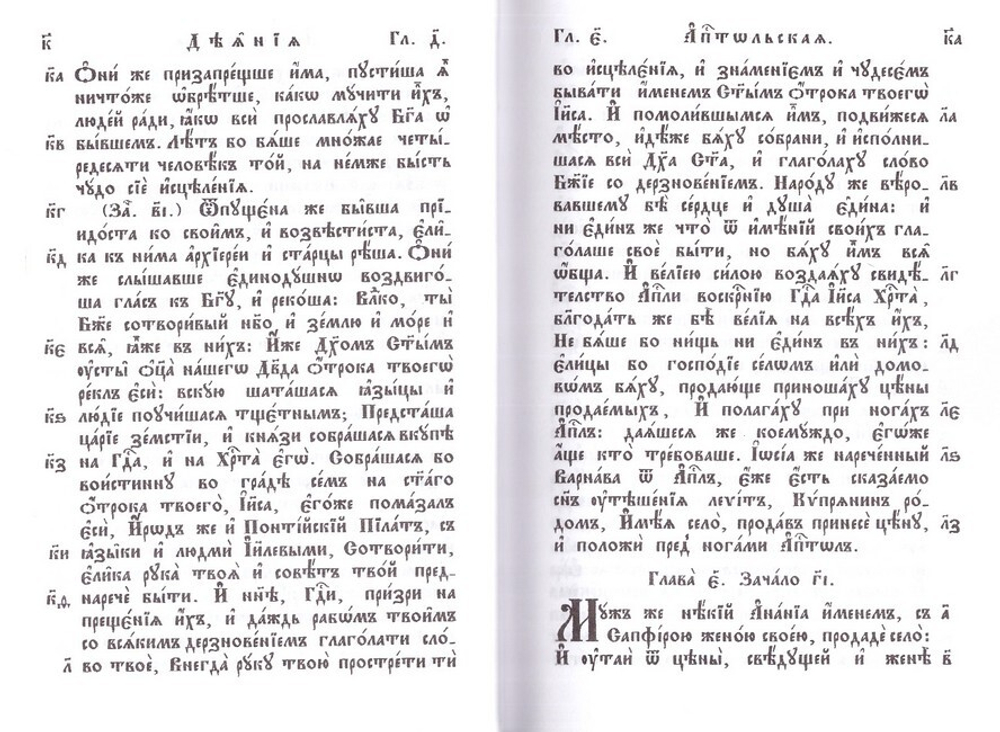 к҃ Дѣѧ̑нїѧ Гл. д҃.
к҃а Ѻ҆ни́ же призапре́щше и҆̀ма, пꙋсти́ша ѧ҆̀
ничто́же ѡ҆брѣ́тше, ка́кѡ мꙋчи́ти и҆̀хъ,
люде́й ра́ди, ꙗ҆́кѡ всѝ прославлѧ́хꙋ Бг҃а ѡ҆
к҃в бы́вшемъ. Лѣ́тъ бо бѧ́ше мно́жае четы́-
редесѧти человѣ́къ то́й, на не́мже бы́сть
чꙋ́до сїѐ и҆сцѣле́нїѧ.
к҃г (За҃. в҃і.) Ѿпꙋще́на же бы̑вша прї-
идо́ста ко свои̑мъ, и҆ возвѣсти́ста, є҆ли́-
к҃д ка къ ни́ма а҆рхїере́и и҆ ста́рцы рѣ́ша. Ѻ҆ни́
же слы́шавше є҆динодꙋ́шнѡ воздвиго́-
ша гла́съ къ Бг҃ꙋ, и҆ реко́ша: Влⷣко, ты̀
Бж҃е сотвори́вый нб҃о и҆ зе́млю и҆ мо́ре и҆
к҃є всѧ̑, ꙗ҆̀же въ ни́хъ: И҆́же Дх҃омъ Ст҃ы́мъ
ᲂу҆сты̑ ѻ҆ц҃а̀ на́шегѡ Дв҃да ѻ҆́трока твоегѡ̀
ре́клъ є҆сѝ: вскꙋ́ю шата́шасѧ ꙗ҆зы́цы и҆
к҃ѕ лю́дїе поꙋчи́шасѧ тще́тнымъ; Предста́ша
ца́рїе зе́мстїи, и҆ кнѧ́зи собра́шасѧ вкꙋ́пѣ
к҃з на Гдⷭ҇а, и҆ на Хрⷭ҇та̀ є҆гѡ̀. Собра́шасѧ бо
вои́стиннꙋ во гра́дѣ се́мъ на ст҃а́го
ѻ҆́трока твоего̀, І҆и҃са, є҆го́же пома́залъ
є҆сѝ, И҆́рѡдъ же и҆ Понті́йскїй Пїла́тъ, съ
к҃и ꙗ҆зы̑ки и҆ людмѝ І҆и҃левыми, Сотвори́ти,
є҆ли̑ка рꙋка̀ твоѧ̀ и҆ совѣ́тъ тво́й пред-
к҃ѳ наречѐ бы́ти. И҆ нн҃ѣ, Гдⷭ҇и, при́зри на
преще́нїѧ и҆́хъ, и҆ да́ждь рабѡ́мъ твои̑мъ
со всѧ́кимъ дерзнове́нїемъ глаго́лати сло́-
л҃ во твоѐ, Внегда̀ рꙋ́кꙋ твою̀ простре́ти тѝ
Гл. є҃. А҆пⷭ҇тѡльскаѧ. к҃а
во и҆сцѣле́нїѧ, и҆ зна́менїємъ и҆ чꙋдесє́мъ
быва́ти и҆́менемъ Ст҃ы́мъ ѻ҆́трока твоегѡ̀
І҆и҃са. И҆ помоли́вшымсѧ и҆̀мъ, подви́жесѧ л҃а
мѣ́сто, и҆дѣ́же бѧ́хꙋ со́брани, и҆ и҆спо́лни-
шасѧ всѝ Дх҃а Ст҃а, и҆ глаго́лахꙋ сло́во
Бж҃їе со дерзнове́нїемъ. Наро́дꙋ же вѣ́ро- л҃в
вавшемꙋ бѣ̀ се́рдце и҆ дꙋша̀ є҆ди́на: и҆
ни є҆ди́нъ же что̀ ѿ и҆мѣ́нїй свои́хъ гла-
го́лаше своѐ бы́ти, но бѧ́хꙋ и҆̀мъ всѧ̑
ѻ҆́бща. И҆ ве́лїею си́лою воздаѧ́хꙋ свидѣ́- л҃г
телство А҆пⷭ҇ли воскрⷭ҇нїю Гдⷭ҇а І҆и҃са Хрⷭ҇та̀,
блгⷣть же бѣ̀ ве́лїѧ на всѣ́хъ и҆́хъ,
Не бѧ́ше бо ни́щь ни є҆ди́нъ въ ни́хъ: л҃д
є҆ли́цы бо господїе се́лѡмъ и҆лѝ домо-
вѡ́мъ бѧ́хꙋ, продаю́ще приноша́хꙋ цѣ́ны
продае́мыхъ, И҆ полага́хꙋ при нога́хъ л҃є
А҆пⷭ҇лъ: даѧ́шесѧ же коемꙋ́ждо, є҆гѡ́же
а҆́ще кто̀ тре́боваше. І҆ѡсі́а же нарече́нный л҃ѕ
Варна́ва ѿ А҆пⷭ҇лъ, є҆́же є҆́сть сказа́емо
сн҃ъ ᲂу҆тѣше́нїѧ леѵі́тъ, Кѵ́прѧнинъ ро́-
домъ, И҆мѣ́ѧ село̀, прода́въ принесѐ цѣ́нꙋ, л҃з
и҆ положѝ пред̾ нога́ми А҆пⷭ҇тѡлъ.
Глава̀ є҃. Зача́ло г҃і.
Мꙋ́жъ же нѣ́кїй А҆на́нїа и҆́менемъ, съ а҃
Сапфі́рою жено́ю свое́ю, продадѐ село̀:
И҆ ᲂу҆таѝ ѿ цѣны̀, свѣ́дꙋщей и҆ женѣ̀ в҃